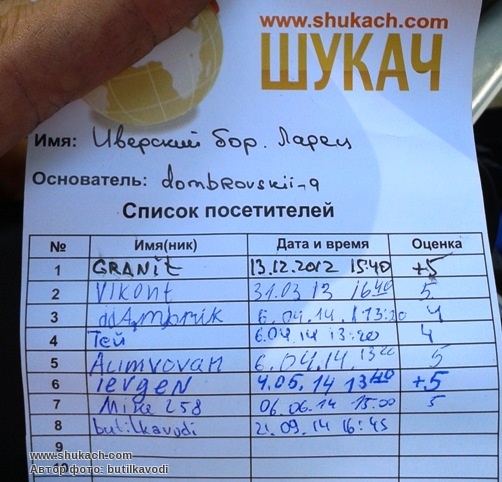 www.shukach.com
ШУКАЧ
Имя: Иверский бор. Ларец
Основатель: dombrovskii-9
Список посетителей
№ Имя(ник) Дата и время Оценка
1 GRANit 13.12.2012 15:40 +5
2 Vikont 31.03 13 16 40 5
3 6.04.14. 13:20 4
4 Тей 6.04.14 13:20 4
5 Alimvovan 6.04.14. 13 20 5
6 ievgen 4.05.14 13 40 +5
7 Mike 258 06.06.14 15:00 5
8 butilkavodi 21.09.14 16:45
9
10
www.shukach.com
Автор фото: butilkavodi